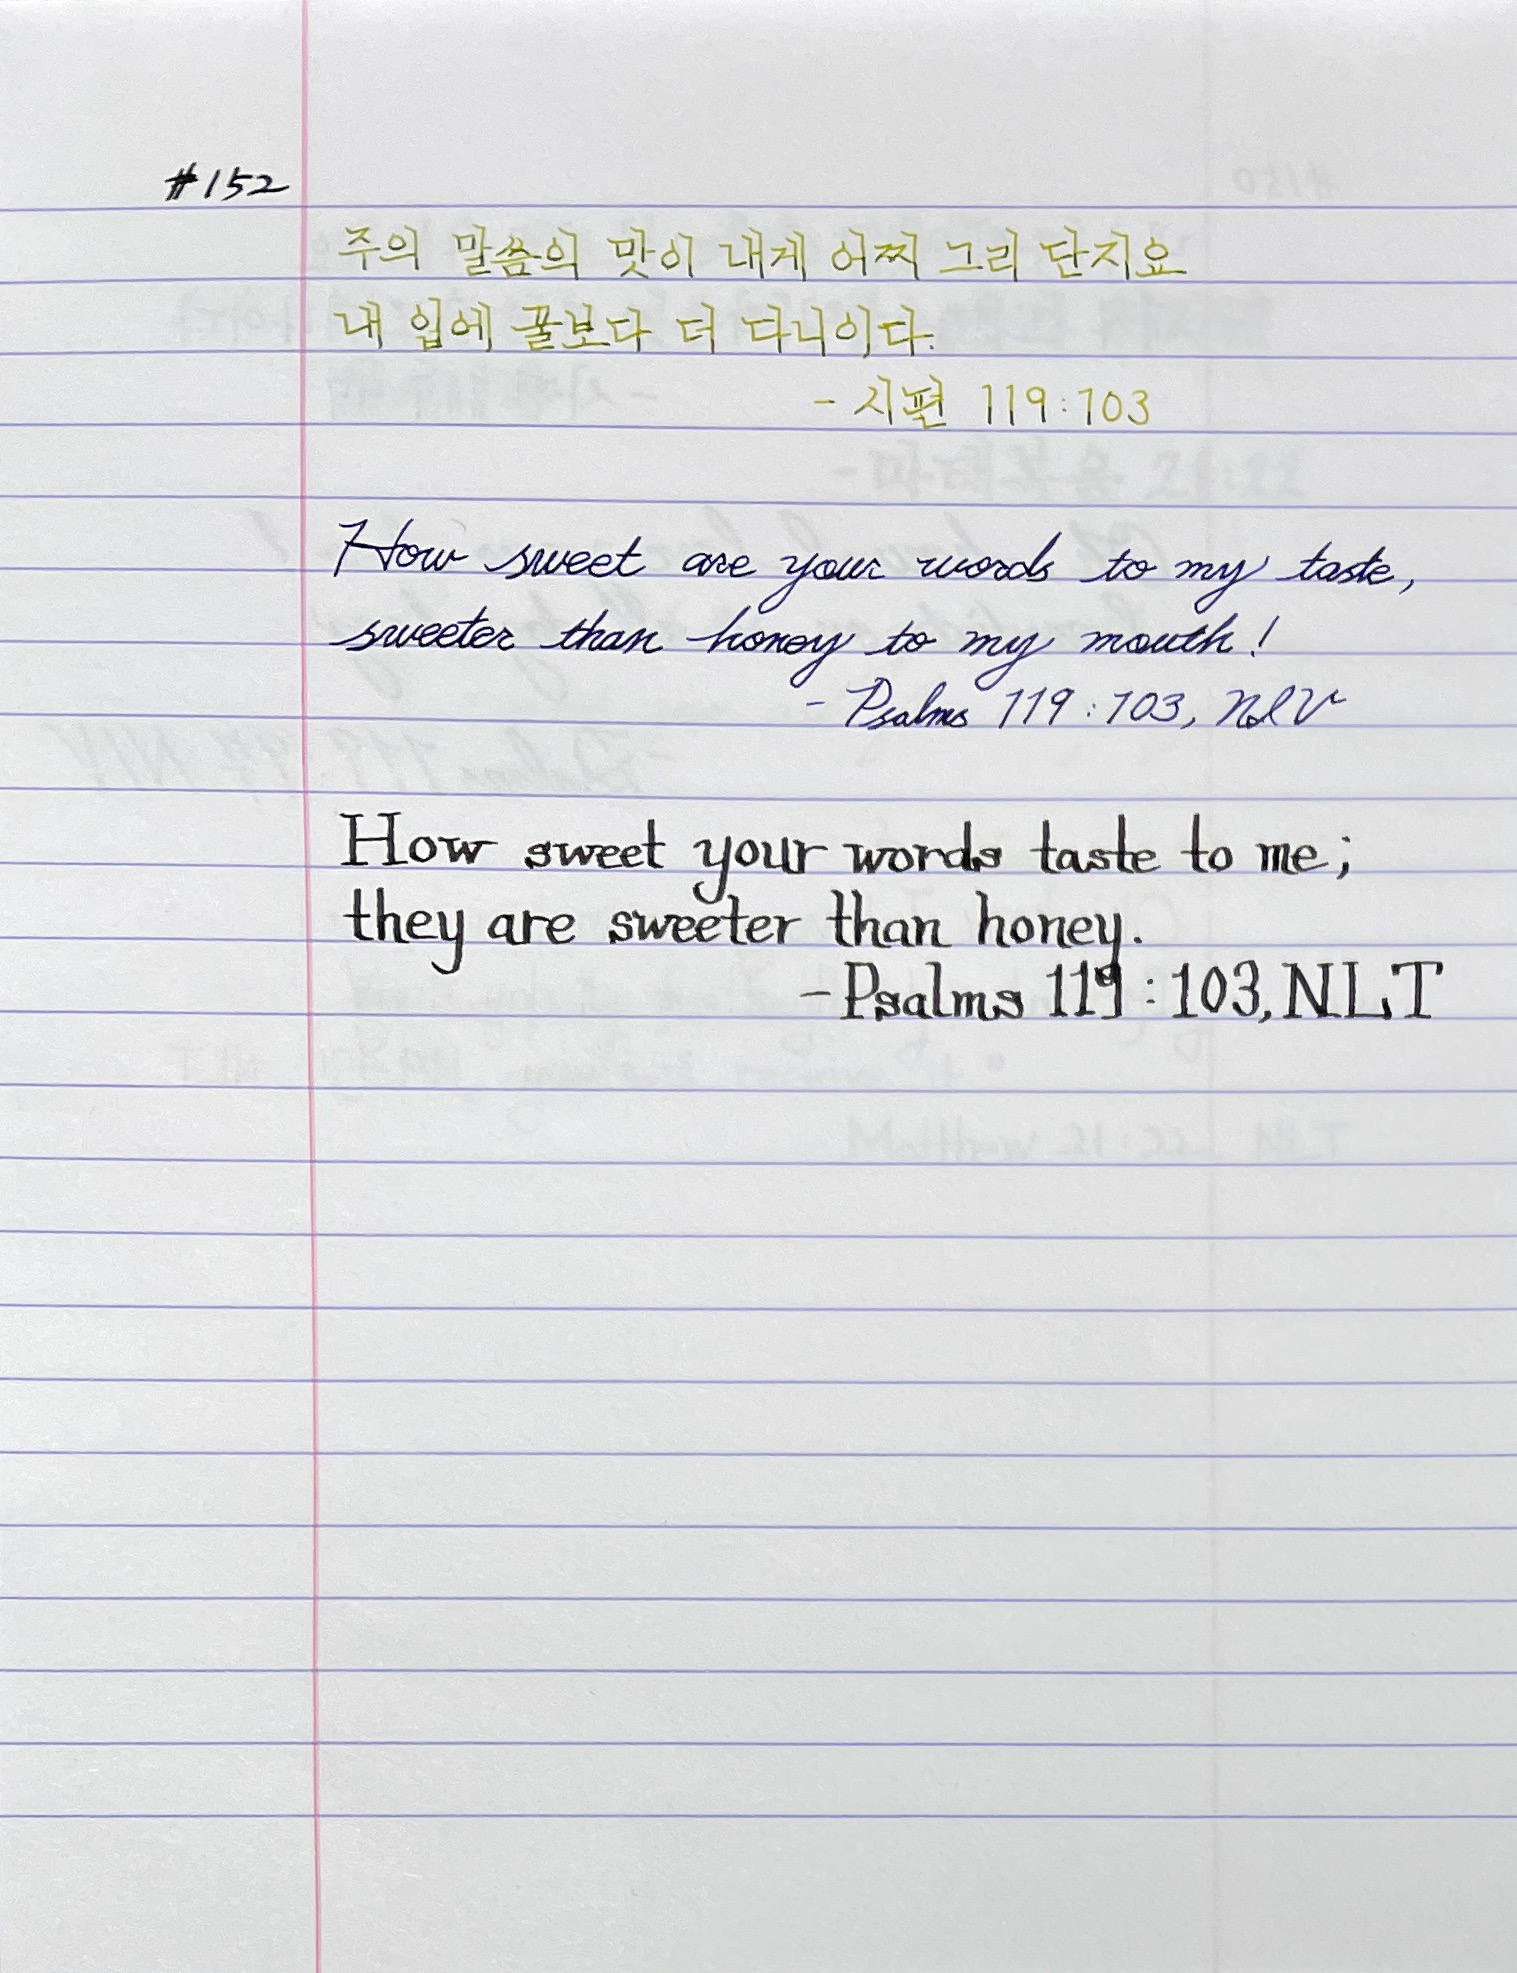 #152
주의 말씀의 맛이 내게 어찌 그리 단지요
내 입에 꿀보다 더 다니이다.
- 시편 119:103
How sweet are your words to my taste,
sweeter than honey to my mouth!
- Psalms 119:103, NIV
How sweet your words taste to me;
they are sweeter than honey.
- Psalms 119:103, NLT